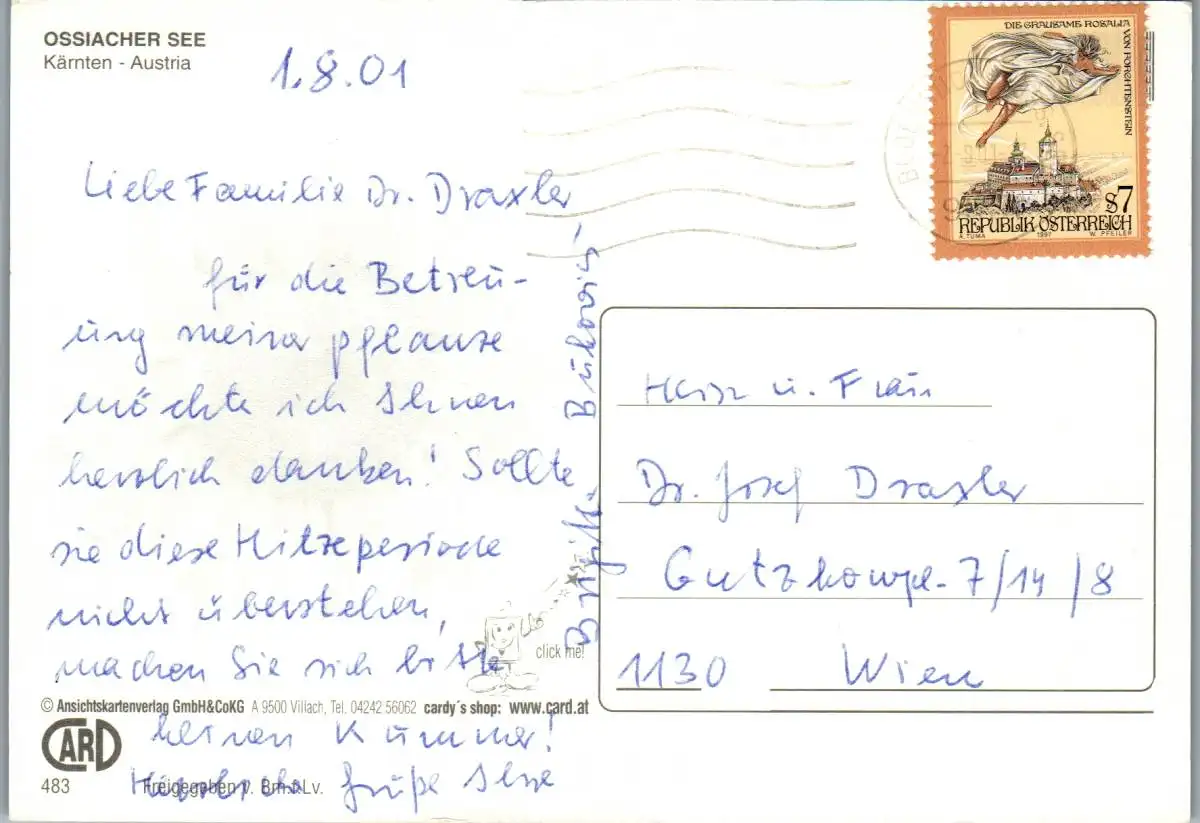 OSSIACHER SEE
Kärnten - Austria
1.8.01
Liebe Familie Dr. Draxler,
für die Betreu-
ung meiner Pflanze
möchte ich Ihnen
herzlich danken! Sollte
sie diese Hitzeperiode
nicht überstehen,
machen Sie sich bitte
keinen Kummer!
Herzliche Grüße Ihre
click me!
© Ansichtskartenverlag GmbH&CoKG A 9500 Villach, Tel. 04242 56062 cardy's shop: www.card.at
CARD
483
Freigegeben v. Bm.f.Lv.
DIE GRAUSAME ROSALIA
VON FORCHTENSTEIN
S7
REPUBLIK ÖSTERREICH
A. TUMA 1997 W. PFEILER
Herr u. Frau
Dr. Josef Draxler
7/14/8
1130 Wien